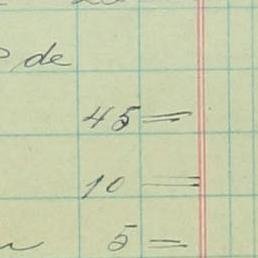 de
45=
10 =
5 =